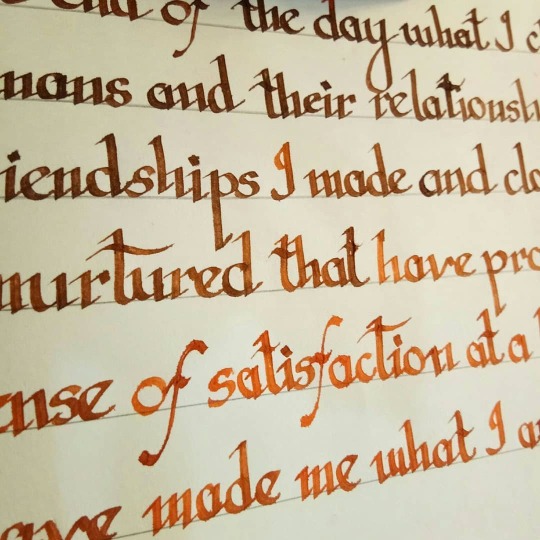 end of the day what I c
mans and their relationsh
iendships I made and clo
nurtured that have pro
ense of satisfaction at a l
ave made me what I a